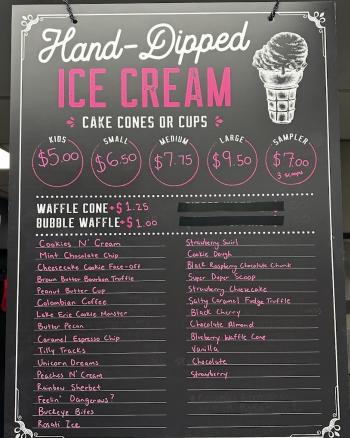 Hand-Dipped
ICE CREAM
CAKE CONES OR CUPS
KIDS
$5.00
SMALL
$6.50
MEDIUM
$7.75
LARGE
$9.50
SAMPLER
$7.00
3 scoops
WAFFLE CONE +$1.25
BUBBLE WAFFLE +$1.00
Cookies N' Cream
Mint Chocolate Chip
Cheesecake Cookie Face-off
Brown Butter Bourbon Truffle
Peanut Butter Cup
Colombian Coffee
Lake Erie Cookie Monster
Butter Pecan
Caramel Espresso Chip
Tilly Tracks
Unicorn Dreams
Peaches N' Cream
Rainbow Sherbet
Feelin' Dangerous?
Buckeye Bites
Rosati Ice
Strawberry Swirl
Cookie Dough
Black Raspberry Chocolate Chunk
Super Duper Scoop
Strawberry Cheesecake
Salty Caramel Fudge Truffle
Black Cherry
Chocolate Almond
Blueberry Waffle Cone
Vanilla
Chocolate
Strawberry